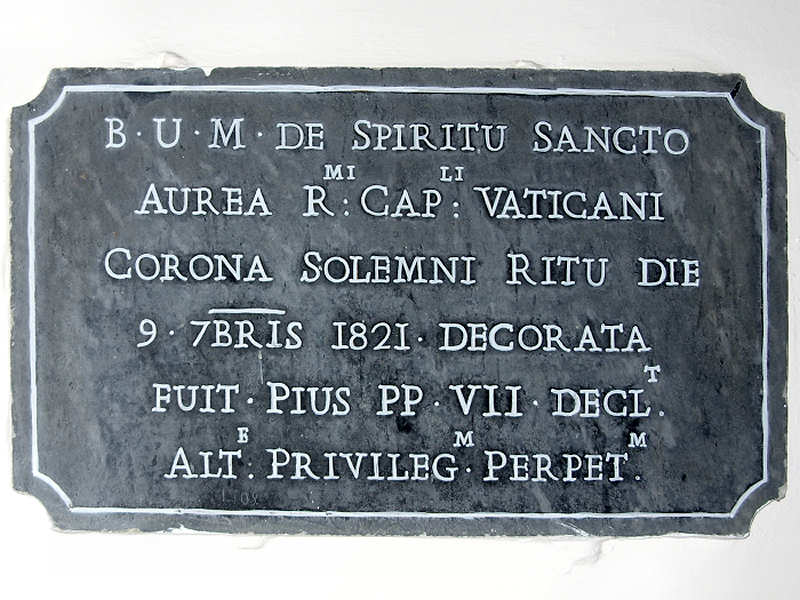 B · U · M · DE SPIRITU SANCTO
AUREA R:ᴹᴵ CAP:ᴸᴵ VATICANI
CORONA SOLEMNI RITU DIE
9 · 7BRIS 1821 · DECORATA
FUIT · PIUS PP · VII · DECL.ᵀ
ALT:ᴱ PRIVILEG·ᴹ PERPET.ᴹ